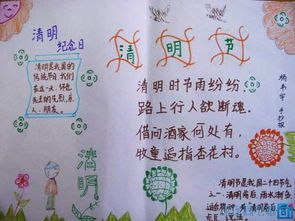 清明
纪念日
清明是我国的
传统节日,我们
在这一天,怀念
先人、朋友。
清明节
清明时节雨纷纷
路上行人欲断魂.
借问酒家何处有,
牧童遥指杏花村.
清明
手抄报
清明节是农历二十四节气
之一.清明前后,雨水增多